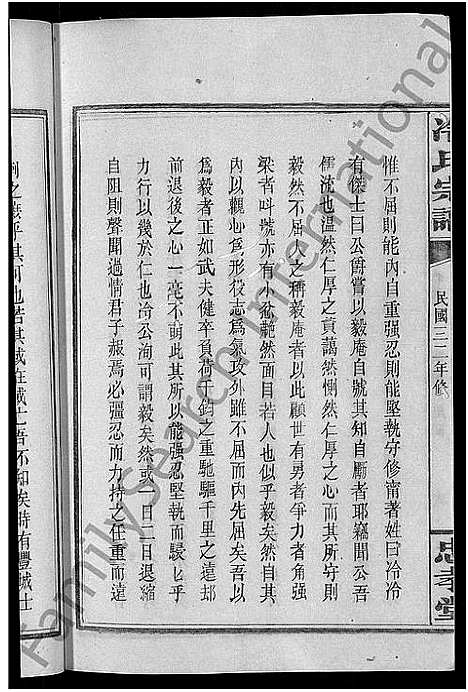 冷氏宗譜
民國三十一年修
忠孝堂
惟不屈則能內自重强忍則能堅執守修甯著姓曰冷冷
有傑士曰公爵嘗以毅庵自號其知自勵者耶竊聞公吾
儒流也溫然仁厚之貢藹然惻然仁厚之心而其所守則
毅然不屈人之稱毅庵者以此顧世有勇者爭力角强
梁者叫號亦有小忿艴然而目若人也似乎毅矣然自其
內以觀心爲形役志爲氣攻外雖不屈而內先屈矣吾以
爲毅者正如武夫健卒負荷千鈞之重馳驅千里之遠却
前退後之心一毫不萌此其所以能强忍堅執而駸乜乎
力行以幾於仁也冷公洵可謂毅矣然或一日二日退縮
自阻則聲聞過情君子赧焉必彊忍而力持之任重而遠
例之嚴乎其可也若其或在或亡吾不知矣時有豐城士
FamilySearch International